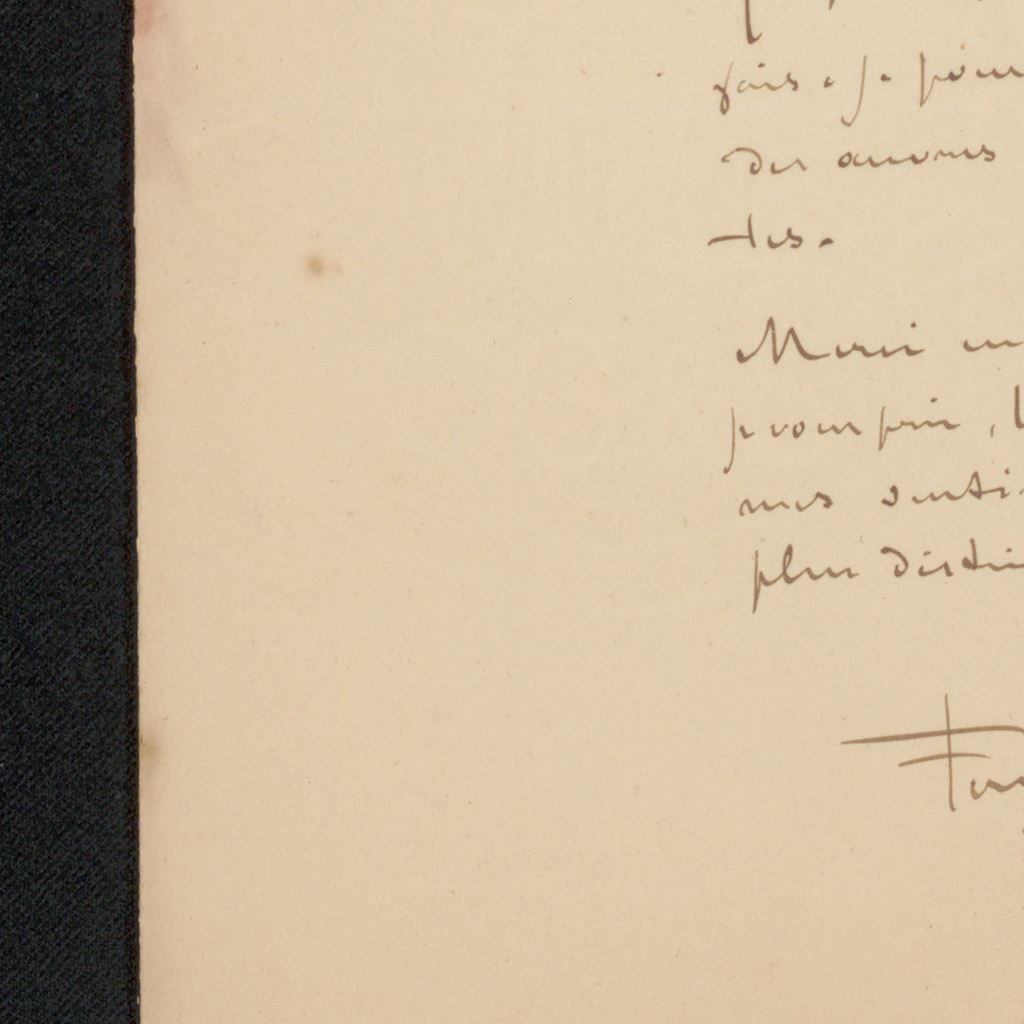 fais. Je pour
des
tes.
Merci en
je vous prie, l
mes senti
plus disti
Fer